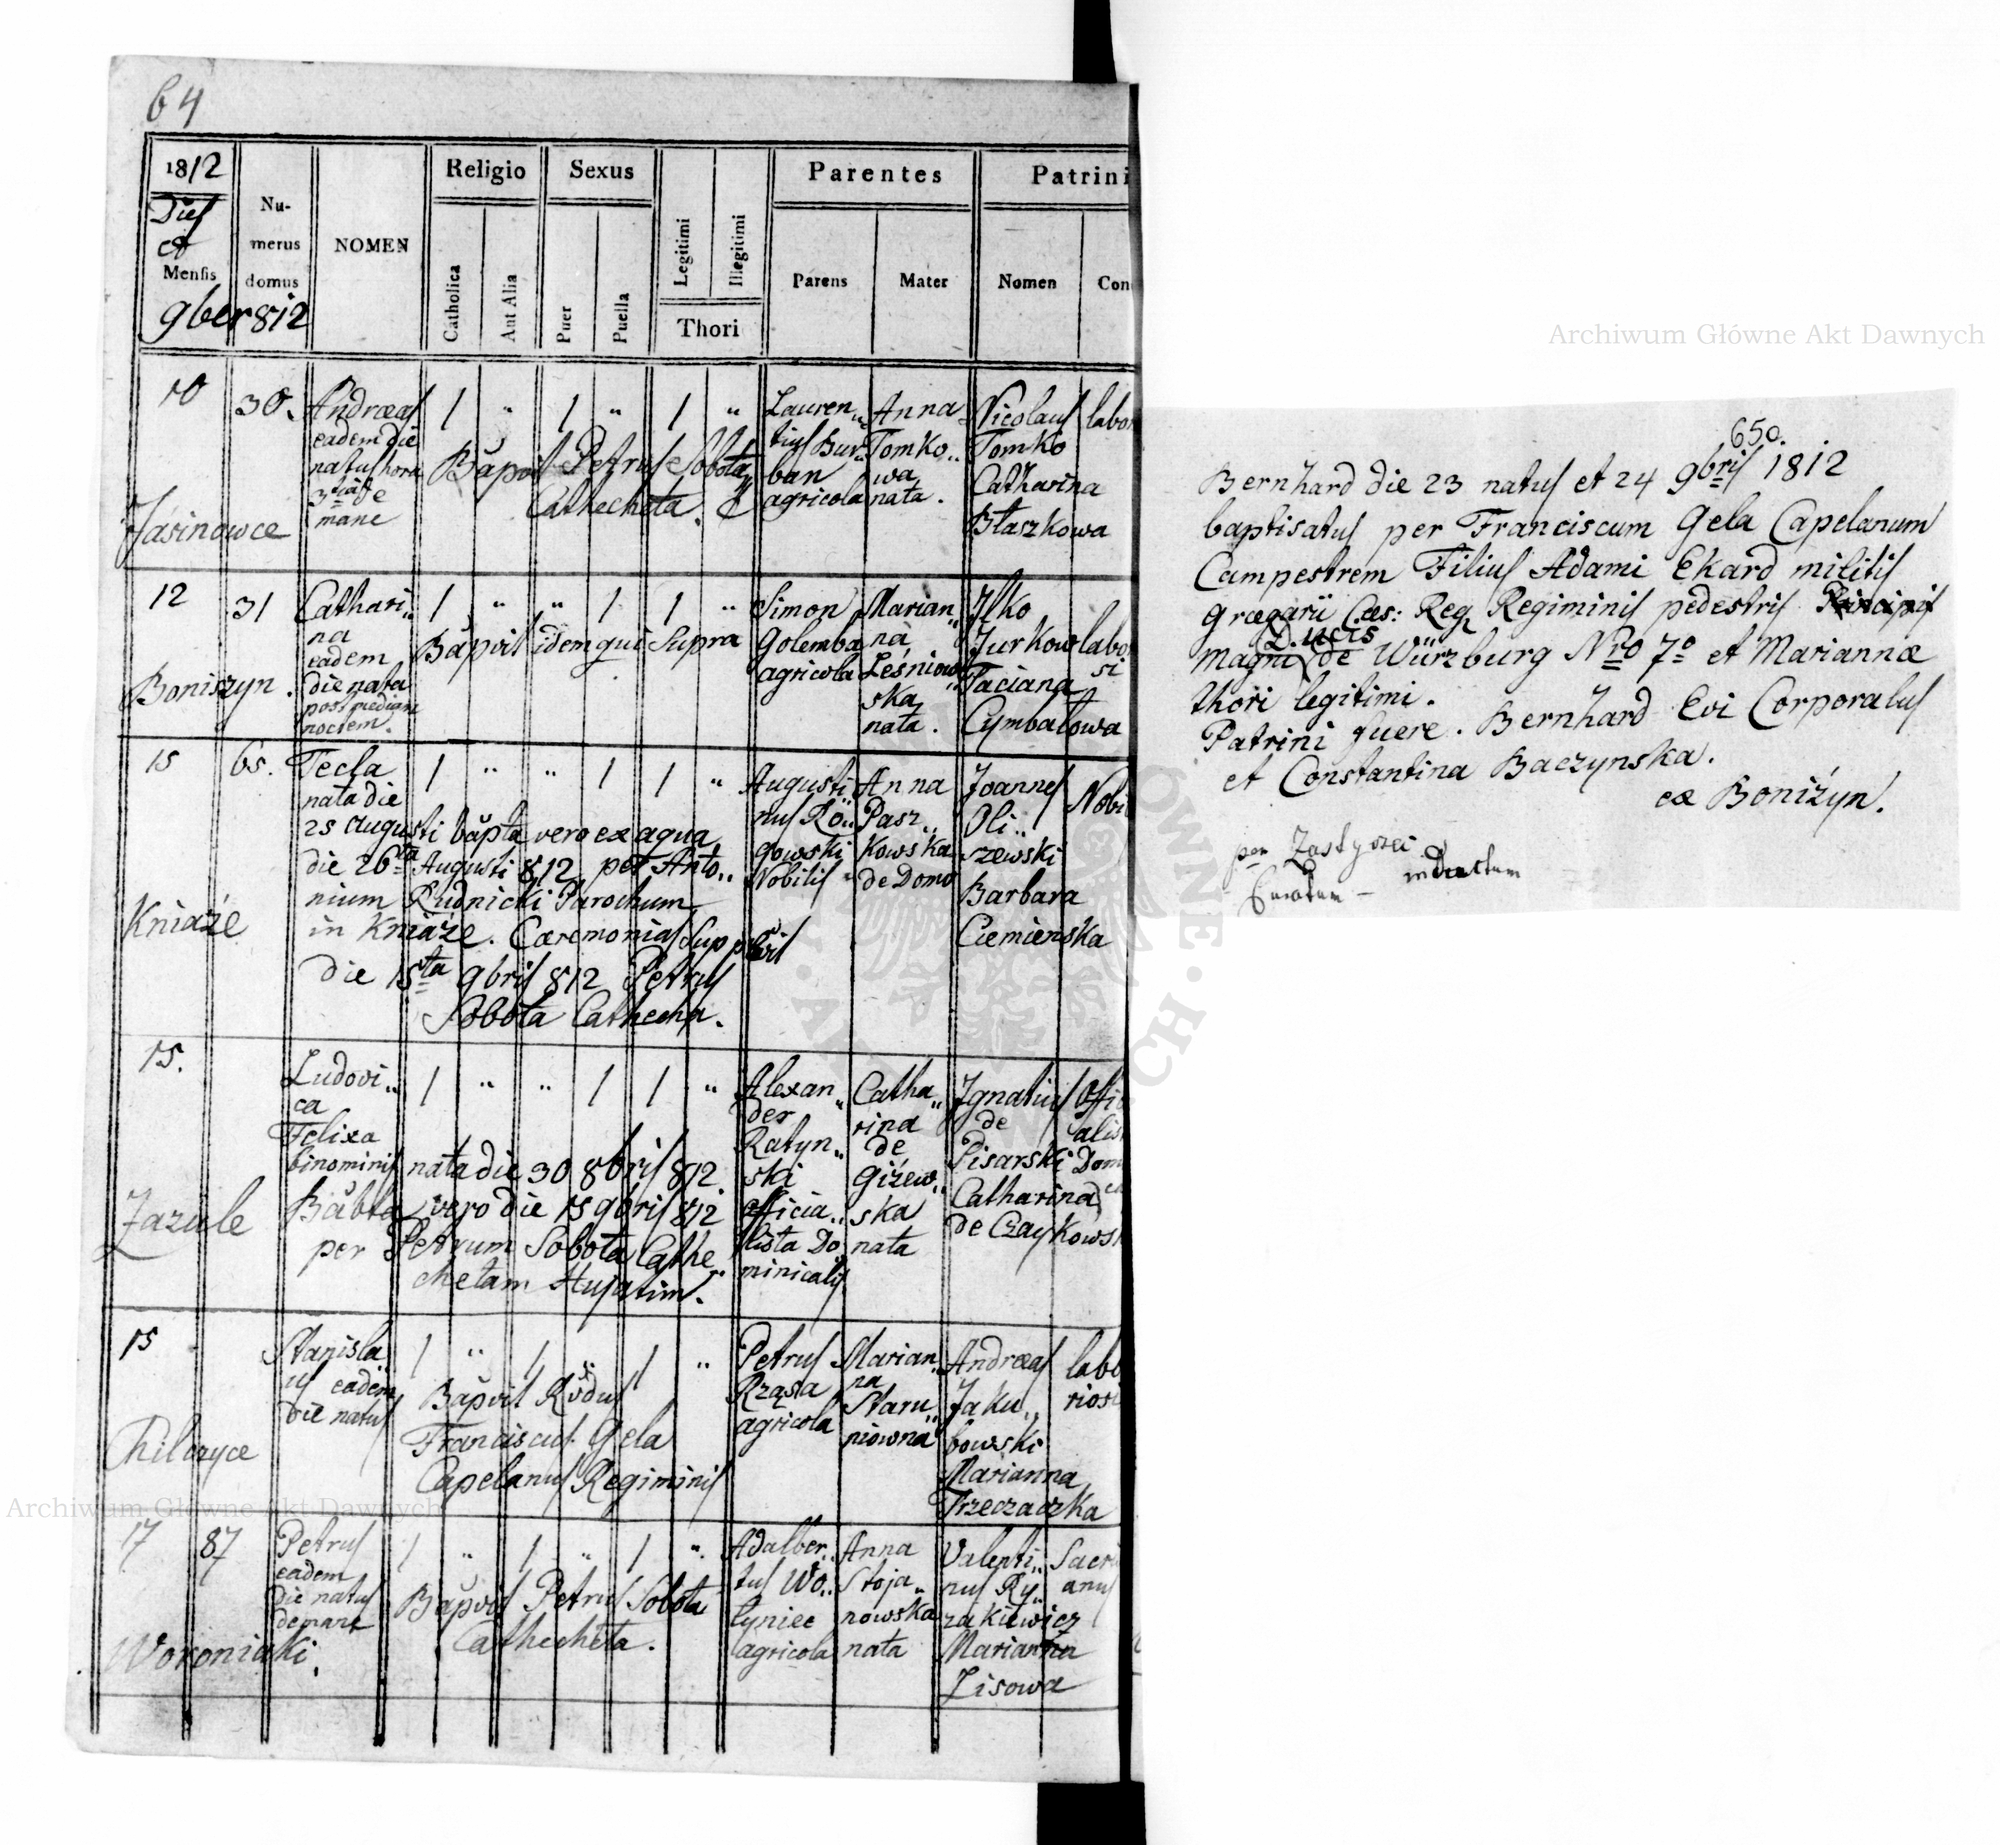 64
1812
Dies
et
Mensis
9ber 812
Nu-
merus
domus
NOMEN
Religio
Catholica
Aut Alia
Sexus
Puer
Puella
Legitimi
Illegitimi
Thori
Parentes
Parens
Mater
Patrini
Nomen
Con
10
Jasinowce
30.
Andreas
eadem die
natus hora
mane
1 " 1 " 1 "
Băpvit Petrus Sobota
Cathecheta.
Lauren„
tius Bur„
ban
agricola
Anna
Tomko„
wa
nata.
Nicolaus
Tomko
Catharina
Błaszkowa
labo
12
Boniszyn.
31
Cathari„
na
eadem
die nata
post mediam
noctem.
1 " " 1 1 "
Băpvit idem qui supra
Simon
Golemba
agricola
Marian„
na
Leśniow„
ska
nata.
Ilko
Jurkow
Taciana
Cymbałowa
labo
si
15
Kniaże
65.
Tecla
nata die
1 " " 1 1 "
25 Augusti băpta vero ex aqua
die 26ta Augusti 812 per Anto„
nium Rudnicki Parochum
in Kniaże. Cæremonias supplevit
die 15ta 9bris 812 Petrus
Sobota Cathecha.
Augusti
nus Ro„
gowski
Nobilis
Anna
Pasz„
kowska
de Domo
Joannes
Oli„
szewski
Barbara
Ciemierska
Nobi
15.
Zazule
Ludovi„
ca
Felixa
1 " " 1 1 "
binominis nata die 30 8bris 812
Băbta vero die 15 9bris 812
per Petrum Sobota Cathe„
chetam Hujatim.
Alexan„
der
Ratyn„
ski
officia„
lista Do„
minicalis
Catha„
rina
de
Giżew„
ska
nata
Ignatius
de
Pisarski
Catharina
de Czaykowsk
Offi
alis
Dom
15
Chilczyce
Stanisla
us eadem
die natus
1 " 1 " 1 "
Băpvit Rvdus
Franciscus Gela
Capelanus Regiminis
Petrus
Rząsa
agricola
Marian„
na
Staru„
niowna
Andreas
Jaku„
bowski
Marianna
Trzeczaczka
labo
riosi
17
Woroniaki.
87
Petrus
eadem
die natus
de mane
1 " 1 " 1 "
Băpvit Petrus Sobota
Cathecheta.
Adalber„
tus Wo„
łyniec
agricola
Anna
Stoja„
nowska
nata
Valenti„
nus Ry„
zakiewicz
Marianna
Lisowa
Sacri
anus
650.
Bernhard die 23 natus et 24 9bris 1812
baptisatus per Franciscum Gela Capelanum
Campestrem Filius Adami Ekard militis
gregarii Cæs: Reg Regiminis pedestris Principis
Ducis
magni de Würzburg Nro 7o et Mariannæ
thori legitimi.
Patrini fuere. Bernhard Evi Corporalus
et Constantina Baczynska.
ex Boniżyn.
per
Curatum -
Archiwum Główne Akt Dawnych
Archiwum Główne Akt Dawnych